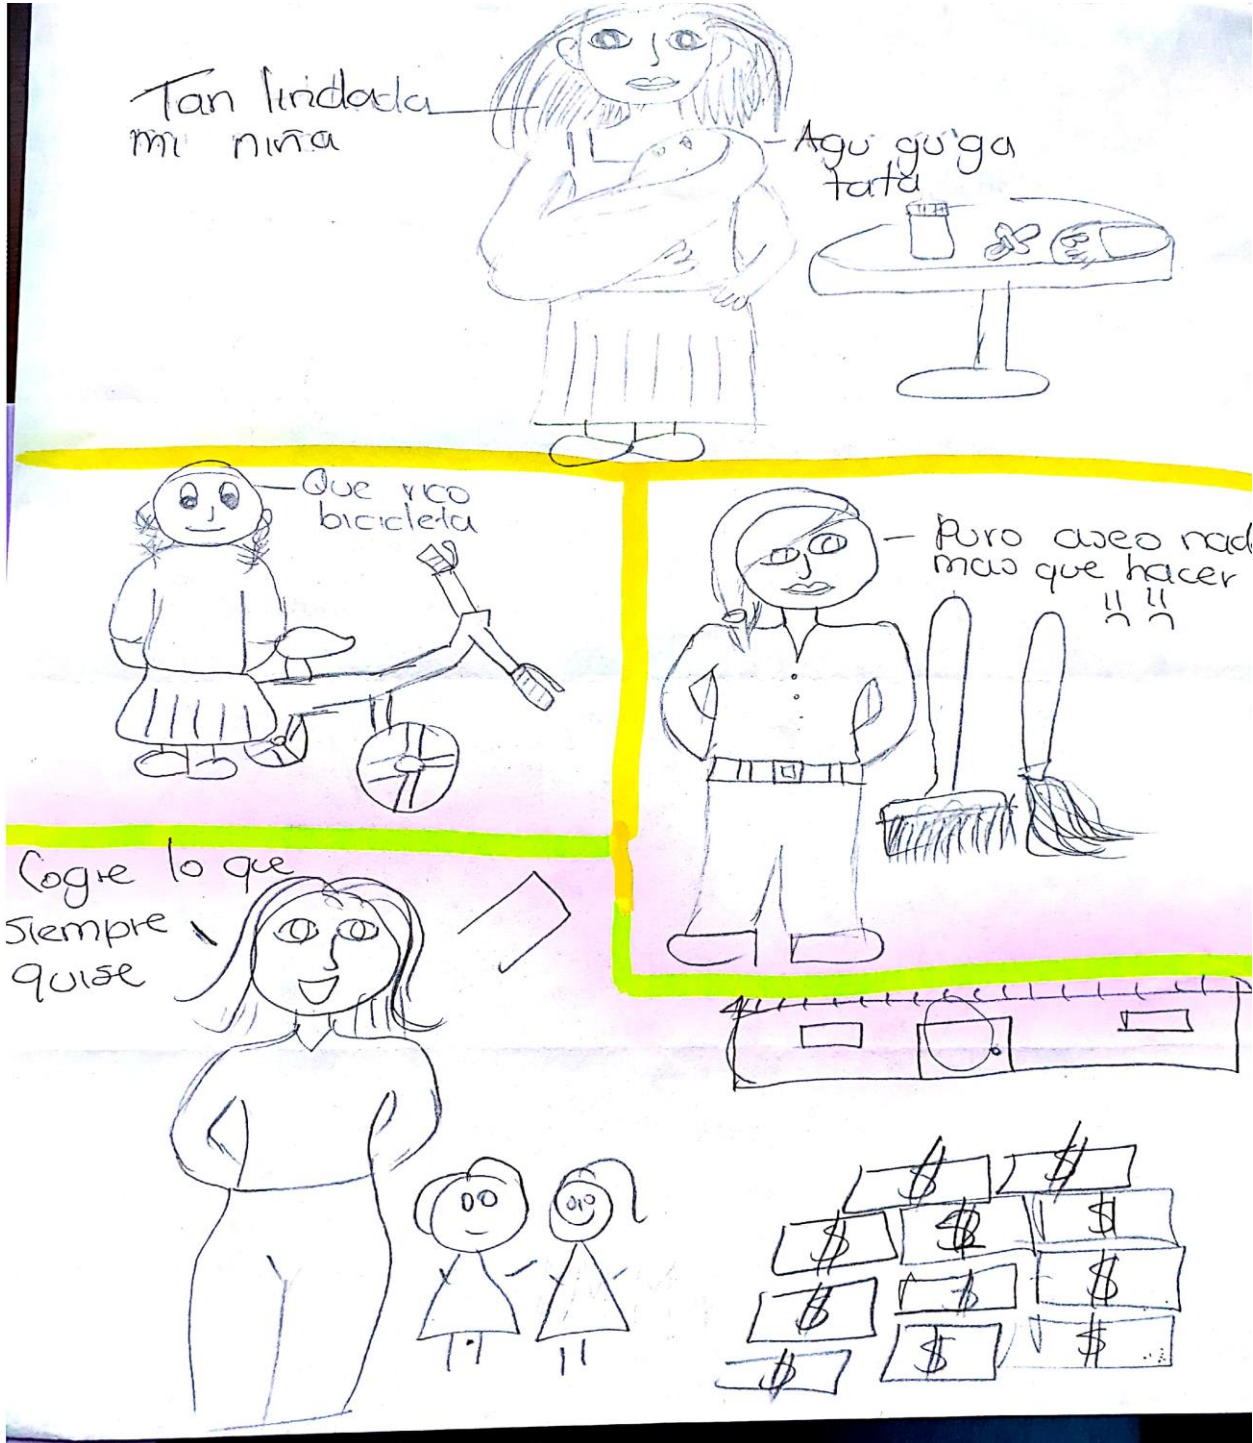 Tan lindada
mi niña
Agu gu'ga
tata
Que rico
bicicleta
Puro aseo nad
mas que hacer
Logre lo que
siempre
quise
$ $
$ $ $
$ $ $
$ $ $